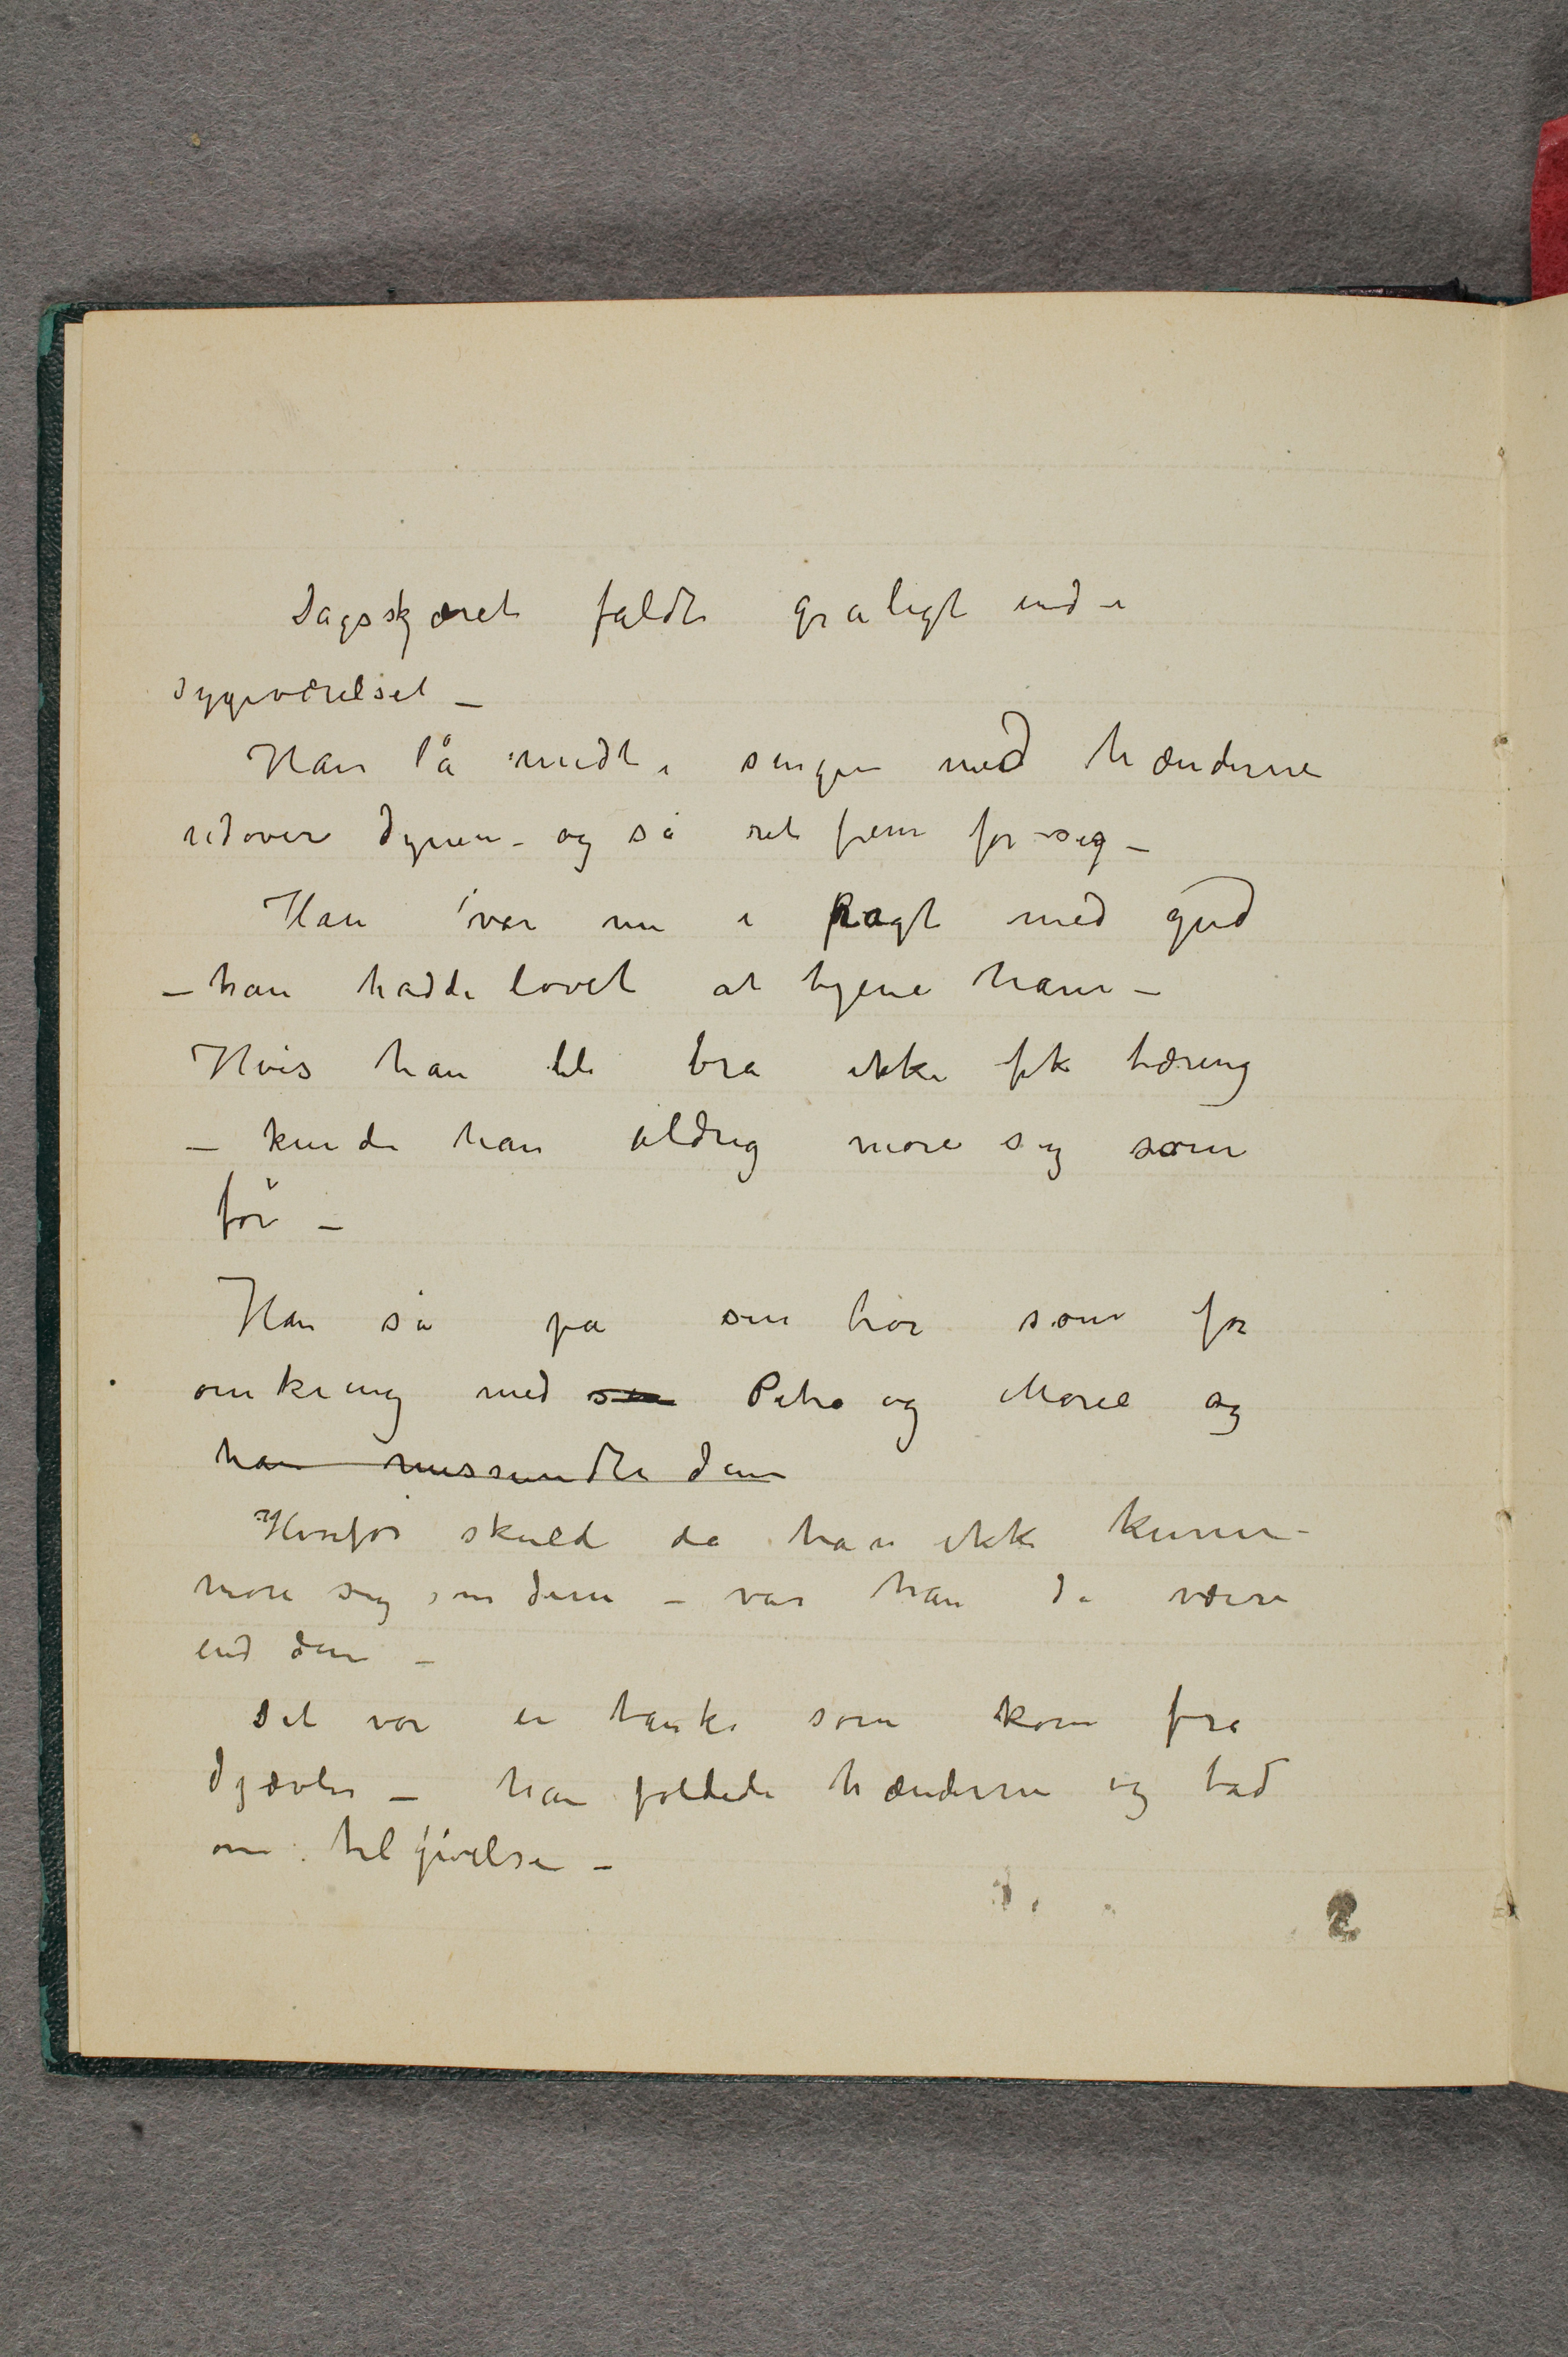 Dagsskjæret faldt gråligt ind i
sygeværelset –
Han lå midt i sengen med hænderne
udover dynen – og så ret frem for sig –
Han var nu i pagt med gud
– han hadde lovet at tjene ham –
Hvis han ble bra ikke fik tæring
– kunde han aldrig more sig som
før –
Han så på sin bror som for
omkring med sin Petra og Marie og
han missundte dem
Hvorfor skulde da han ikke kunne
more sig som dem – var han da værre
end dem –
Det var en tanke som kom fra
djævlen – han foldede hænderne og bad
om tilgivelse –
2